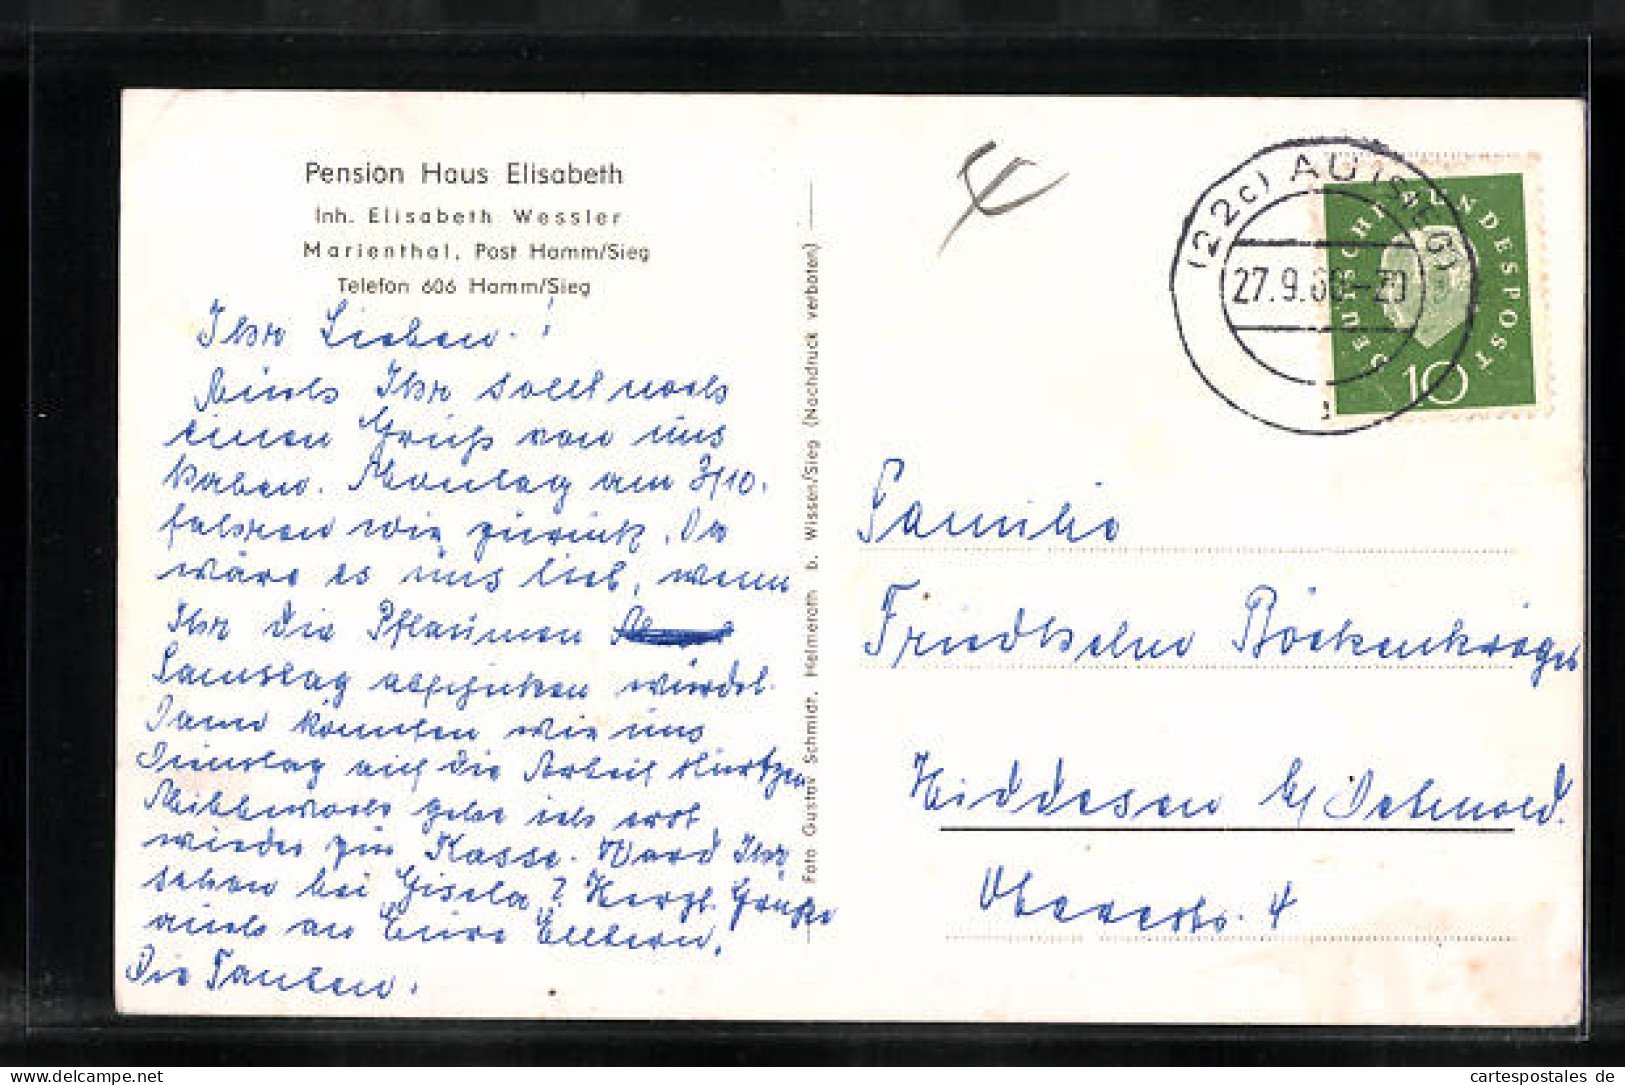 Pension Haus Elisabeth
Inh. Elisabeth Wessler
Marienthal, Post Hamm/Sieg
Telefon 606 Hamm/Sieg
Ihr Lieben.!
Auch Ihr sollt noch
einen Gruß von uns
haben. Montag am 3/10.
fahren wir zurück. Da
wäre es uns lieb, wenn
Ihr die Pflaumen
Samstag abpflücken würdet.
Dann könnten wir uns
Dienstag auf die Arbeit stürtzen
Mittwoch gehe ich erst
wieder zur Kasse. Ward Ihr
schon bei Gisela? Herzl. Grüße
auch an Eure Eltern,
Die Tanten.
Foto Gustav Schmidt, Helmeroth b. Wissen/Sieg (Nachdruck verboten)
(22c) AU (SIEG)
27.9.60-20
DEUTSCHE BUNDESPOST
10
Familie
Friedhelm Bökenkröger
Hiddesen b/ Detmold.
Oberestr. 4
www.delcampe.net
cartespostales de